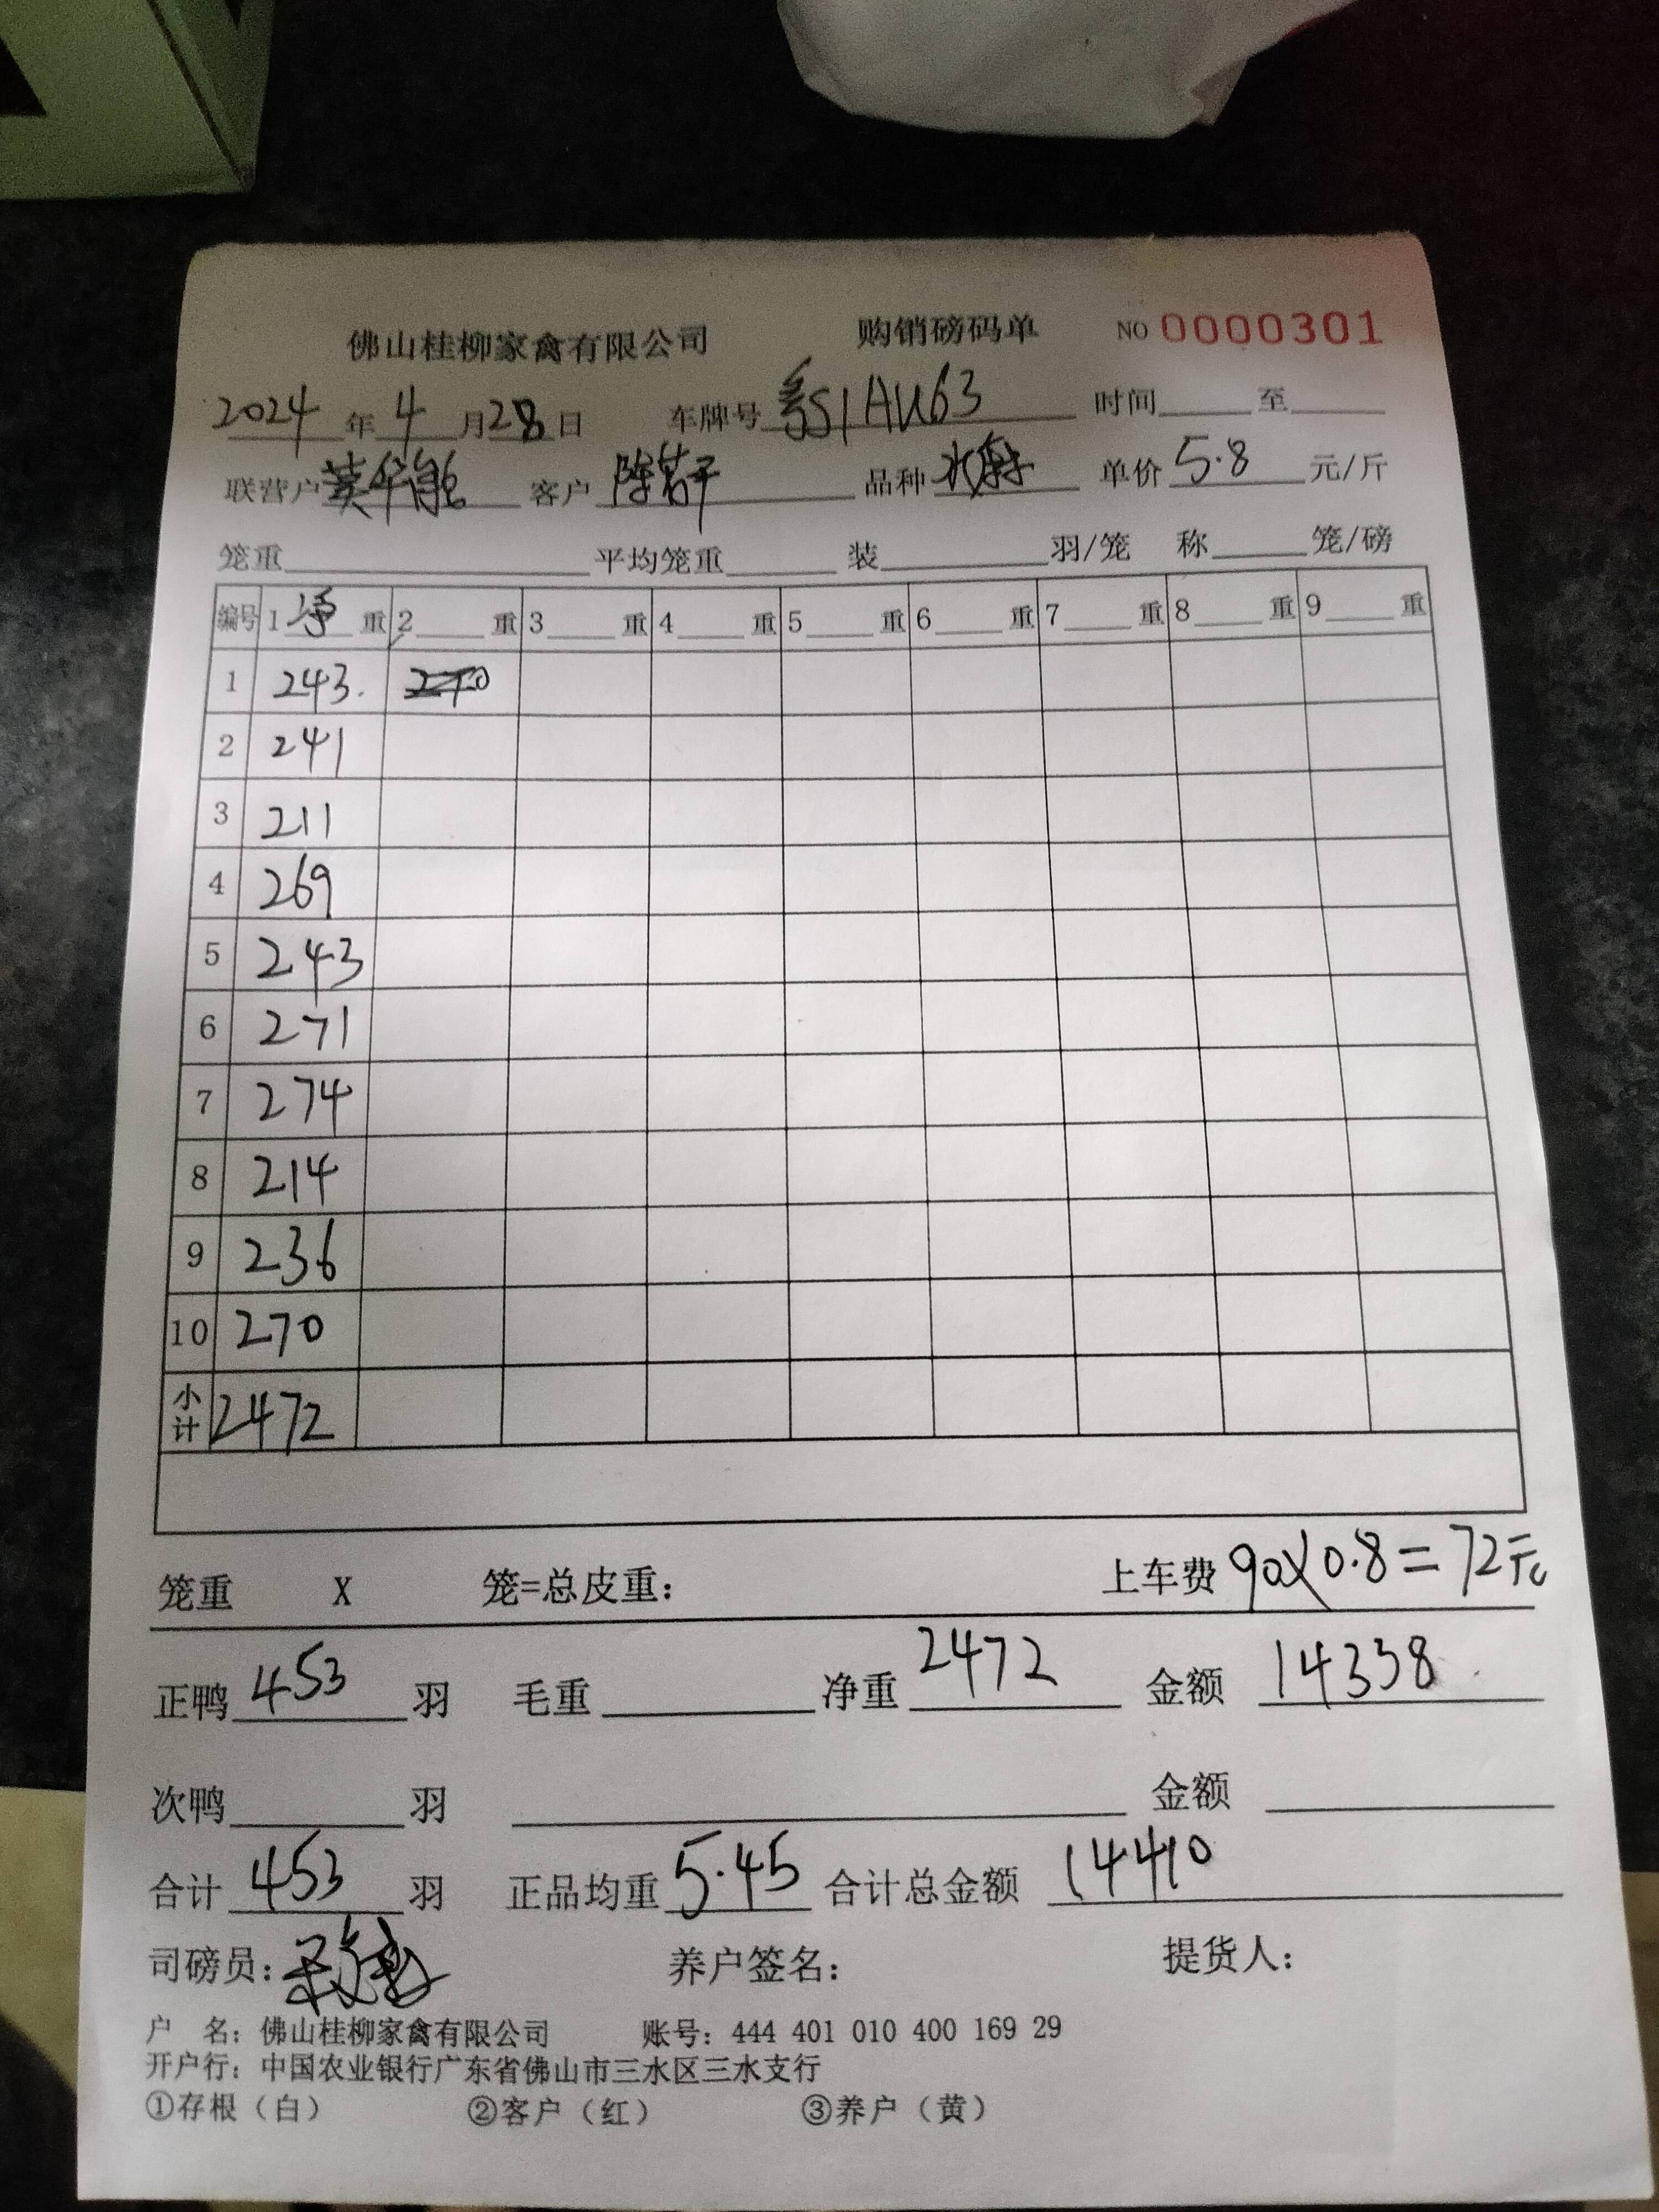 佛山桂柳家禽有限公司 购销磅码单 NO 0000301
2024 年 4 月 28 日 车牌号 粤S1AU63 时间 至
联营户 客户 陈 品种 水 单价 5.8 元/斤
笼重 平均笼重 装 羽/笼 称 笼/磅
编号 1 净 重 2 重 3 重 4 重 5 重 6 重 7 重 8 重 9 重
1 243. 270
2 241
3 211
4 269
5 243
6 271
7 274
8 214
9 236
10 270
小计 2472
笼重 X 笼=总皮重: 上车费 90X0.8=72元
正鸭 453 羽 毛重 净重 2472 金额 14338
次鸭 羽 金额
合计 453 羽 正品均重 5.45 合计总金额 14410
司磅员: 养户签名: 提货人:
户 名: 佛山桂柳家禽有限公司 账号: 444 401 010 400 169 29
开户行: 中国农业银行广东省佛山市三水区三水支行
①存根（白） ②客户（红） ③养户（黄）